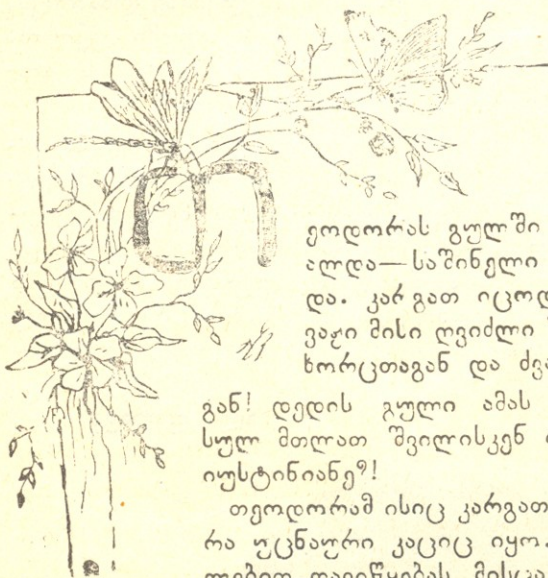 თეოდორას გულში
ალდა—საშინელი
და. კარგათ იცოდ
ვაჟი მისი ღვიძლი
ხორცთაგან და ძვა
გან! დედის გული ამას
სულ მთლათ შვილისკენ
იუსტინიანე?!
თეოდორამ ისიც კარგათ
რა უცნაური კაციც იყო.